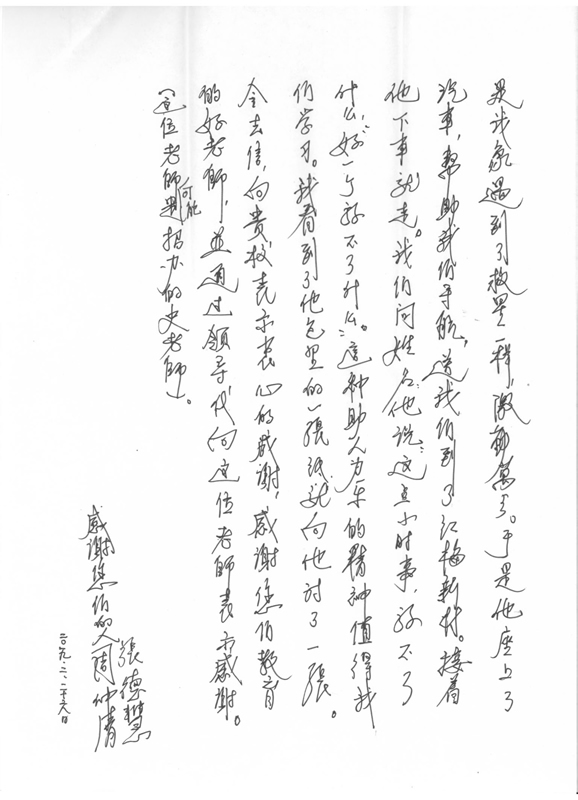 是我家遇到了救星一样，激动万分。于是他座上了
汽车，帮助我们手航，送我们到了江梅新村。接着
他下车就走。我们问姓名，他说：“这点小时事，称不了
什么，好一个称不了什么。”這种助人为乐的精神值得我
们学习。我看到了他包里的一張纸就向他讨了一張。
今去信，向贵校表示衷心的感谢，感谢您们教育
的好老師，並通过领导代向这位老師表示感谢。
（這位老師可能是招办的史老師）。
感谢您们的人 周仲清
張德慧
二〇一九.二.二十六日